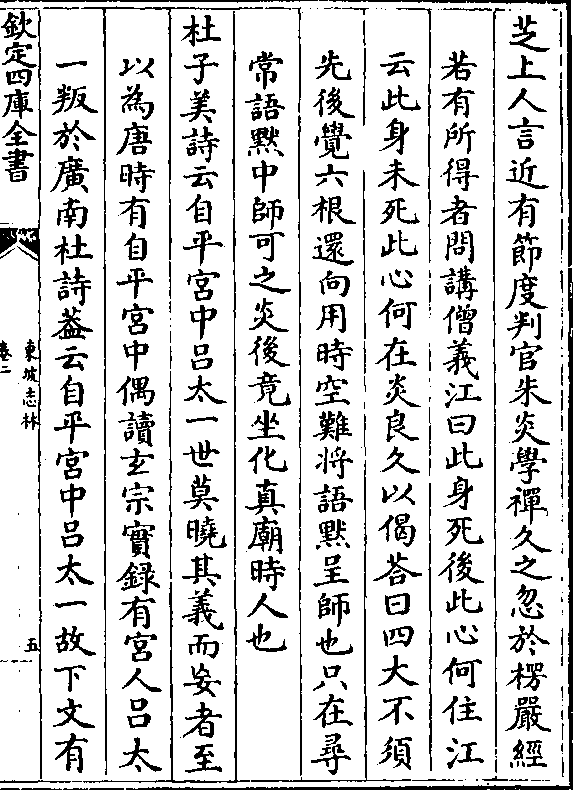 芝上人言近有節度判官朱炎學禪久之忽於楞嚴經
若有所得者問講僧義江曰此身死後此心何住江
云此身未死此心何在炎良久以偈荅曰四大不須
先後覺六根還向用時空難將語黙呈師也只在尋
常語黙中師可之炎後竟坐化真廟時人也
杜子美詩云自平宮中吕太一世莫曉其義而妄者至
以為唐時有自平宮中偶讀玄宗實録有宮人吕太
一叛於廣南杜詩葢云自平宮中吕太一故下文有
欽定四庫全書
東坡志林
卷二
五